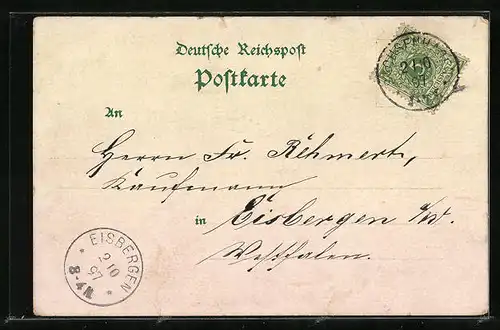 Deutsche Reichspost
Postkarte
An
Herrn Fr. Röhmert,
Kaufmann
in Eisbergen a/W.
Westfalen.
2 10
97
* EISBERGEN *
2 10
97
8-9 N.